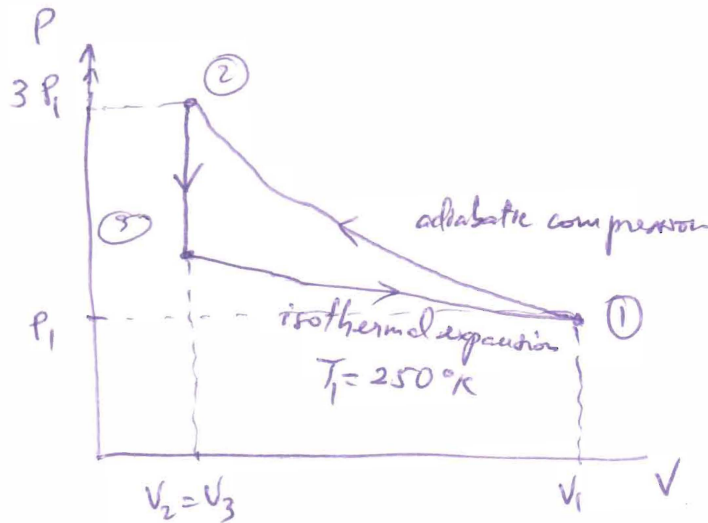 P
②
3P₁
adiabatic compression
③
P₁
isothermal expansion
①
T₁ = 250°K
V₂ = V₃
V₁
V